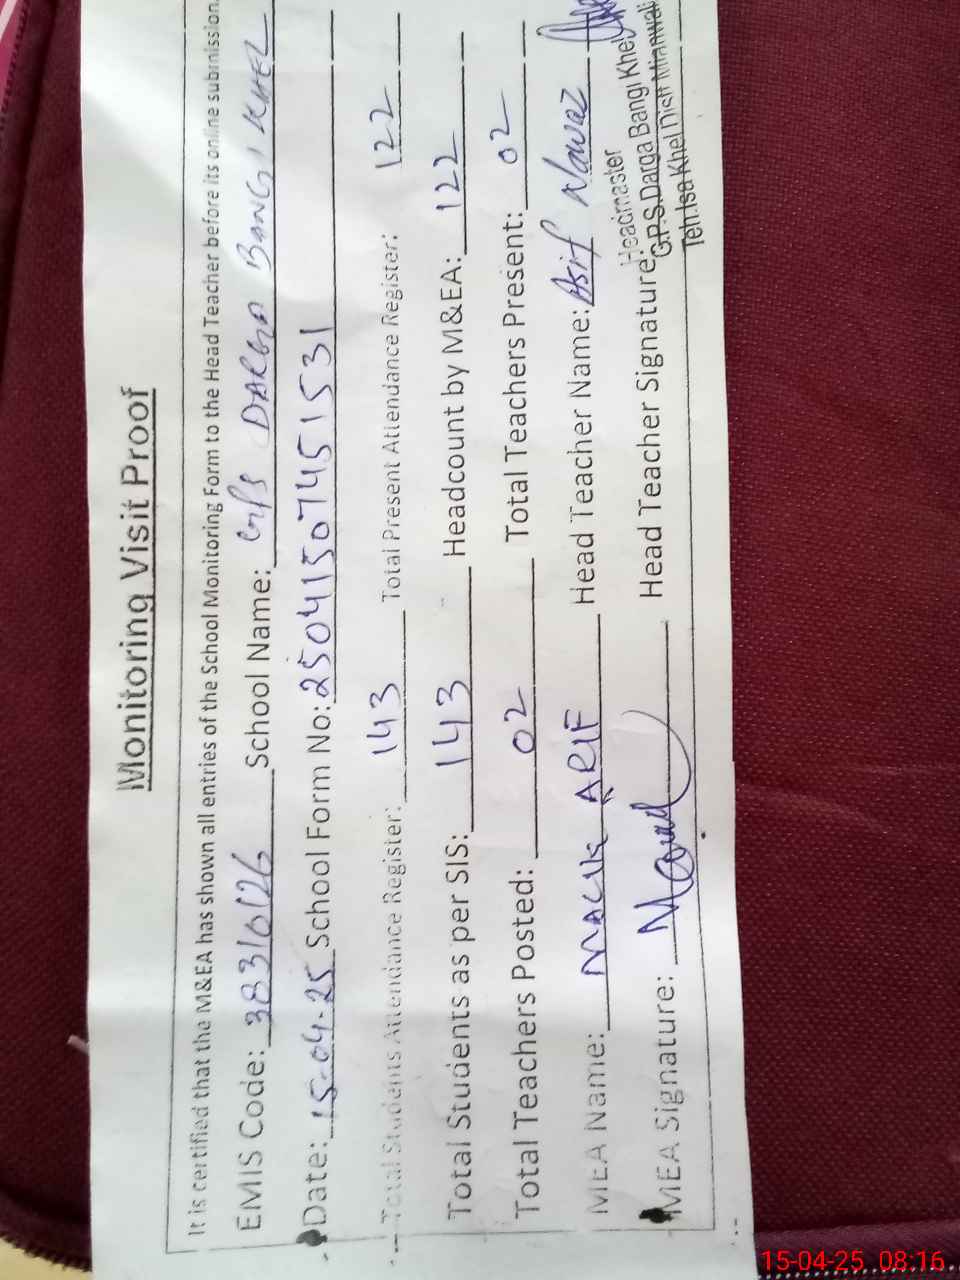 Monitoring Visit Proof
It is certified that the M&EA has shown all entries of the School Monitoring Form to the Head Teacher before its online submission.
EMIS Code: 38310126 School Name: GPS DARGA BANGI KHEL
Date: 15-04-25 School Form No: 25041507451531
Total Students Attendance Register: 143 Total Present Attendance Register: 122
Total Students as per SIS: 143 Headcount by M&EA: 122
Total Teachers Posted: 02 Total Teachers Present: 02
MEA Name: MALIK ARIF Head Teacher Name: Asif Nawaz
MEA Signature: Head Teacher Signature:
Headmaster
G.P.S.Darga Bangi Khel
Teh.Isa Khel Distt Mianwali
15-04-25 08:16